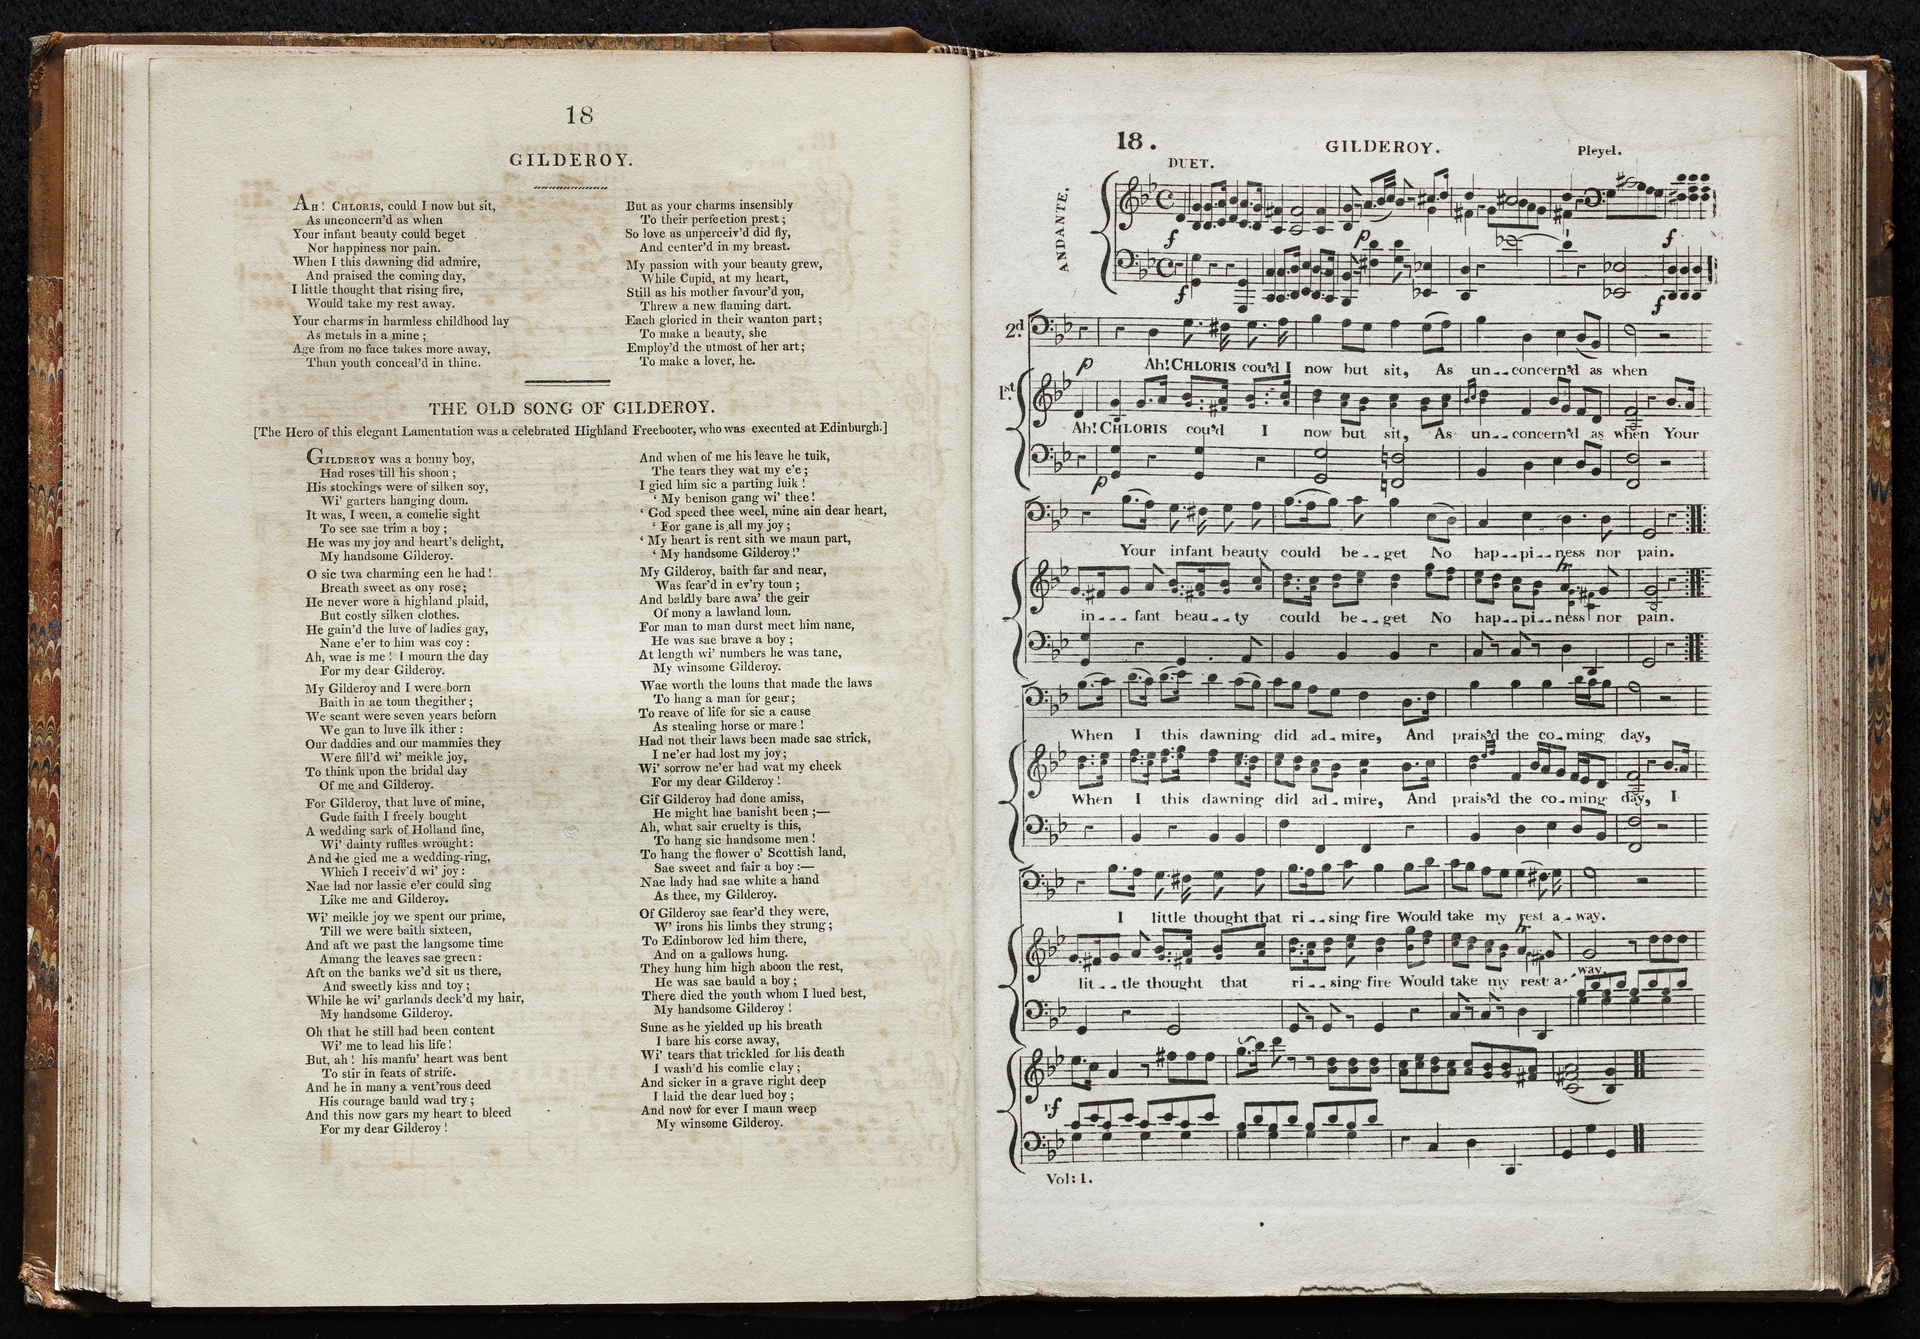 18
GILDEROY.
AH! CHLORIS, could I now but sit,
As unconcern'd as when
Your infant beauty could beget
Nor happiness nor pain.
When I this dawning did admire,
And praised the coming day,
I little thought that rising fire,
Would take my rest away.
Your charms in harmless childhood lay
As metals in a mine;
Age from no face takes more away,
Than youth conceal'd in thine.
But as your charms insensibly
To their perfection prest;
So love as unperceiv'd did fly,
And center'd in my breast.
My passion with your beauty grew,
While Cupid, at my heart,
Still as his mother favour'd you,
Threw a new flaming dart.
Each gloried in their wanton part;
To make a beauty, she
Employ'd the utmost of her art;
To make a lover, he.
THE OLD SONG OF GILDEROY.
[The Hero of this elegant Lamentation was a celebrated Highland Freebooter, who was executed at Edinburgh.]
GILDEROY was a bonny boy,
Had roses till his shoon;
His stockings were of silken soy,
Wi' garters hanging doun.
It was, I ween, a comelie sight
To see sae trim a boy;
He was my joy and heart's delight,
My handsome Gilderoy.
O sic twa charming een he had!
Breath sweet as ony rose;
He never wore a highland plaid,
But costly silken clothes.
He gain'd the luve of ladies gay,
Nane e'er to him was coy:
Ah, wae is me! I mourn the day
For my dear Gilderoy.
My Gilderoy and I were born
Baith in ae toun thegither;
We scant were seven years beforn
We gan to luve ilk ither:
Our daddies and our mammies they
Were fill'd wi' meikle joy,
To think upon the bridal day
Of me and Gilderoy.
For Gilderoy, that luve of mine,
Gude faith I freely bought
A wedding sark of Holland fine,
Wi' dainty ruffles wrought:
And he gied me a wedding-ring,
Which I receiv'd wi' joy:
Nae lad nor lassie e'er could sing
Like me and Gilderoy.
Wi' meikle joy we spent our prime,
Till we were baith sixteen,
And aft we past the langsome time
Amang the leaves sae green:
Aft on the banks we'd sit us there,
And sweetly kiss and toy;
While he wi' garlands deck'd my hair,
My handsome Gilderoy.
Oh that he still had been content
Wi' me to lead his life!
But, ah! his manfu' heart was bent
To stir in feats of strife.
And he in many a vent'rous deed
His courage bauld wad try;
And this now gars my heart to bleed
For my dear Gilderoy!
And when of me his leave he tuik,
The tears they wat my e'e;
I gied him sic a parting luik!
‘ My benison gang wi' thee!
‘ God speed thee weel, mine ain dear heart,
‘ For gane is all my joy;
‘ My heart is rent sith we maun part,
‘ My handsome Gilderoy!’
My Gilderoy, baith far and near,
Was fear'd in ev'ry toun;
And baldly bare awa' the geir
Of mony a lawland loun.
For man to man durst meet him nane,
He was sae brave a boy;
At length wi' numbers he was tane,
My winsome Gilderoy.
Wae worth the louns that made the laws
To hang a man for gear;
To reave of life for sic a cause
As stealing horse or mare!
Had not their laws been made sae strick,
I ne'er had lost my joy;
Wi' sorrow ne'er had wat my cheek
For my dear Gilderoy!
Gif Gilderoy had done amiss,
He might hae banisht been;—
Ah, what sair cruelty is this,
To hang sic handsome men!
To hang the flower o' Scottish land,
Sae sweet and fair a boy:—
Nae lady had sae white a hand
As thee, my Gilderoy.
Of Gilderoy sae fear'd they were,
W' irons his limbs they strung;
To Edinborow led him there,
And on a gallows hung.
They hung him high aboon the rest,
He was sae bauld a boy;
There died the youth whom I lued best,
My handsome Gilderoy!
Sune as he yielded up his breath
I bare his corse away,
Wi' tears that trickled for his death
I wash'd his comlie clay;
And sicker in a grave right deep
I laid the dear lued boy;
And now for ever I maun weep
My winsome Gilderoy.
18.
GILDEROY.
Pleyel.
DUET.
ANDANTE.
f p f
f f
2d
p
Ah! CHLORIS cou'd I now but sit, As un--concern'd as when
1st
Ah! CHLORIS cou'd I now but sit, As un--concern'd as when Your
p
Your infant beauty could be--get No hap--pi--ness nor pain.
tr
in---fant beau--ty could be--get No hap--pi--ness nor pain.
When I this dawning did ad-mire, And prais'd the co-ming day,
When I this dawning did ad-mire, And prais'd the co-ming day, I
I little thought that ri--sing fire Would take my rest a-way.
tr
lit--tle thought that ri--sing fire Would take my rest a-way.
rf
Vol: 1.